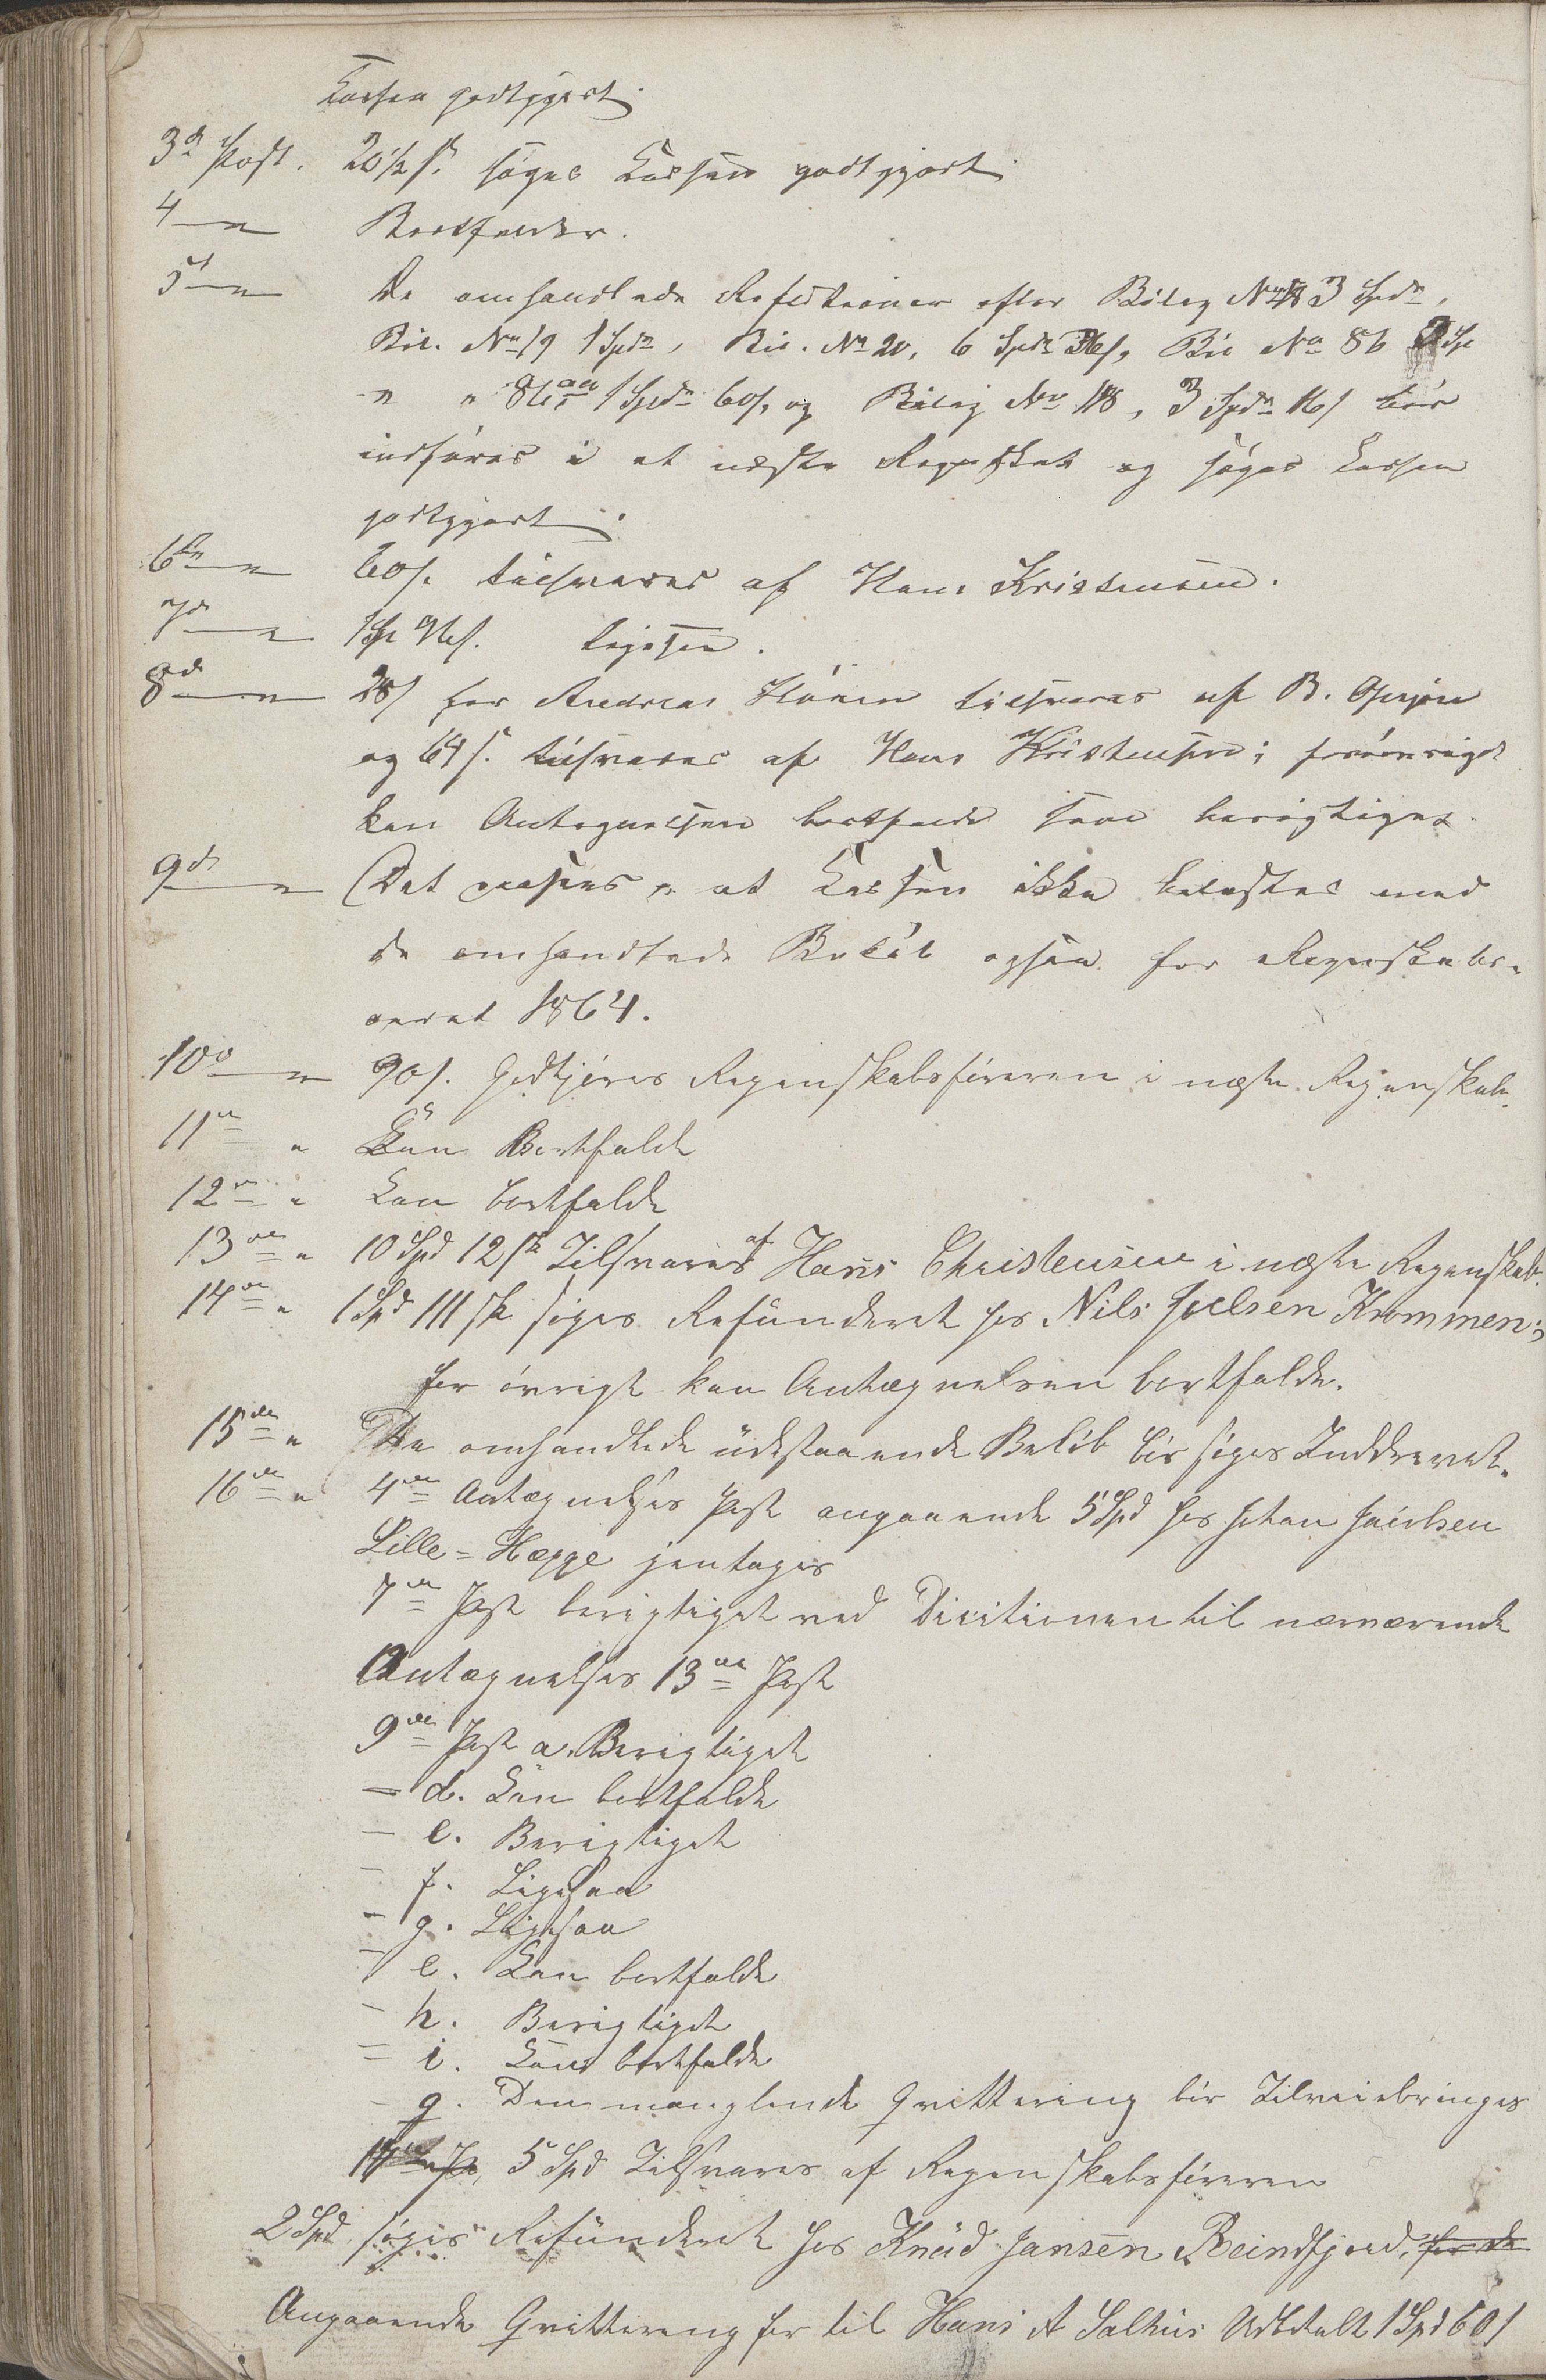 Kassen godtgjort.
3de Post. 20½ s. søges Kassen godtgjort.
4 — " Bortfalder.
5te — " De omhandlede Refusioner efter Bilag No 3 Spd,
Bil. No 19 1 Spd, Bil. No 20, 6 Spd 36 s, Bil No 86 Sp
" " 86 1 Spd 60 s, og Bilag No 118, 3 Spd 16 s bør
indføres i et næste Regnskab og søges Kassen
godtgjort.
6te — " 60 s. tilsvares af Hans Kristensen.
7de — " 1 Sp 96 s. ligesaa.
8de — " 28 s for Andreas tilsvares af B.
og 64 s. tilsvares af Hans Kristensen; forøvrigt
kan Antegnelsen bortfalde som berigtiget.
9de — " Det paasees, at Kassen ikke belastes med
de omhandlede Beløb ogsaa for Regnskabs-
aaret 1864.
10de — " 90 s. Godtjøres Regnskabsføreren i næste Regnskab.
11te " Kan Bortfalde
12te " Kan bortfalde
13de " 10 Spd 12 sk Tilsvares af Hans Christensen i næste Regnskab.
14de " 1 Spd 111 sk søges Refunderet hos Nils Joelsen Krommen;
for øvrigt kan Antegnelsen bortfalde.
15de " De omhandlede udestaaende Beløb bør søges Inddrevet.
16de " 4de Antegnelses Post angaaende 5 Spd hos Johan
Lille-Hægge jentages
7de Post berigtiget ved Disitionen til nærværende
Antegnelses 13de Post
9de Post a. Berigtiget
— d. Kan bortfalde
— e. Berigtiget
— f. Ligesaa
— g. Ligesaa
— e. Kan bortfalde
— h. Berigtiget
— i. Kan bortfalde
— q. Den manglende Qvittering bør Tilveiebringes
14de Po, 5 Spd Tilsvares af Regnskabsføreren
2 Spd søges Refunderet hos Knud Jansen Reindfjord, for de
Angaaende Qvittering for til Hans A Salhus Udbetalt 1 Spd 60 s